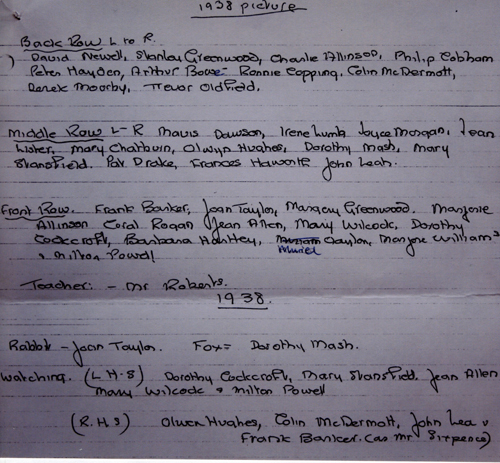 1938 picture
Back Row L to R.
) David Newell, Stanley Greenwood, Charlie Allinson, Philip Cobham
Peter Hayden, Arthur Bowe- Ronnie Copping, Colin McDermott,
Derek Moorby, Trevor Oldfield.
Middle Row L-R Mavis Dawson, Irene Lumb, Joyce Morgan, Jean
Lister, Mary Chatburn, Olwyn Hughes, Dorothy Mash, Mary
Stansfield. Pat Drake, Frances Haworth John Leah.
Front Row. Frank Barker, Joan Taylor, Margary Greenwood. Marjorie
Allinson Coral Rogan Jean Allen, Mary Wilcock, Dorothy
Cockcroft, Barbara Hartley, Clayton, Marjorie Williams
Muriel
& Milton Powell
Teacher: - Mr Roberts.
1938.
Rabbit - Joan Taylor. Fox = Dorothy Mash.
Watching. (L.H.S) Dorothy Cockcroft, Mary Stansfield. Jean Allen
Mary Wilcock & Milton Powell
(R.H.S) Olwen Hughes, Colin McDermott, John Lea
Frank Barker. (as Mr Sixpence)